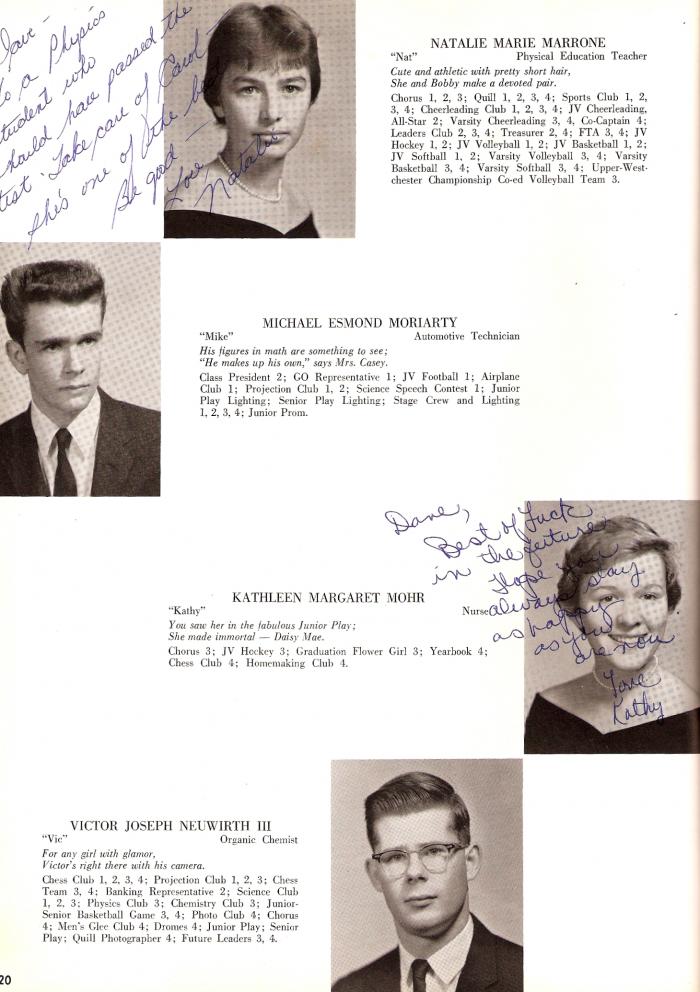 Dave -
to a Physics
student who
should have passed the
test. Take care of Carol -
she's one of the best
Be good
Love
Natalie
NATALIE MARIE MARRONE
"Nat" Physical Education Teacher
Cute and athletic with pretty short hair,
She and Bobby make a devoted pair.
Chorus 1, 2, 3; Quill 1, 2, 3, 4; Sports Club 1, 2,
3, 4; Cheerleading Club 1, 2, 3, 4; JV Cheerleading,
All-Star 2; Varsity Cheerleading 3, 4, Co-Captain 4;
Leaders Club 2, 3, 4; Treasurer 2, 4; FTA 3, 4; JV
Hockey 1, 2; JV Volleyball 1, 2; JV Basketball 1, 2;
JV Softball 1, 2; Varsity Volleyball 3, 4; Varsity
Basketball 3, 4; Varsity Softball 3, 4; Upper-West-
chester Championship Co-ed Volleyball Team 3.
MICHAEL ESMOND MORIARTY
"Mike" Automotive Technician
His figures in math are something to see;
"He makes up his own," says Mrs. Casey.
Class President 2; GO Representative 1; JV Football 1; Airplane
Club 1; Projection Club 1, 2; Science Speech Contest 1; Junior
Play Lighting; Senior Play Lighting; Stage Crew and Lighting
1, 2, 3, 4; Junior Prom.
Dave,
Best of Luck
in the future
Hope you
always stay
as happy
as you
are now
Love
Kathy
KATHLEEN MARGARET MOHR
"Kathy" Nurse
You saw her in the fabulous Junior Play;
She made immortal — Daisy Mae.
Chorus 3; JV Hockey 3; Graduation Flower Girl 3; Yearbook 4;
Chess Club 4; Homemaking Club 4.
VICTOR JOSEPH NEUWIRTH III
"Vic" Organic Chemist
For any girl with glamor,
Victor's right there with his camera.
Chess Club 1, 2, 3, 4; Projection Club 1, 2, 3; Chess
Team 3, 4; Banking Representative 2; Science Club
1, 2, 3; Physics Club 3; Chemistry Club 3; Junior-
Senior Basketball Game 3, 4; Photo Club 4; Chorus
4; Men's Glee Club 4; Dromes 4; Junior Play; Senior
Play; Quill Photographer 4; Future Leaders 3, 4.
20